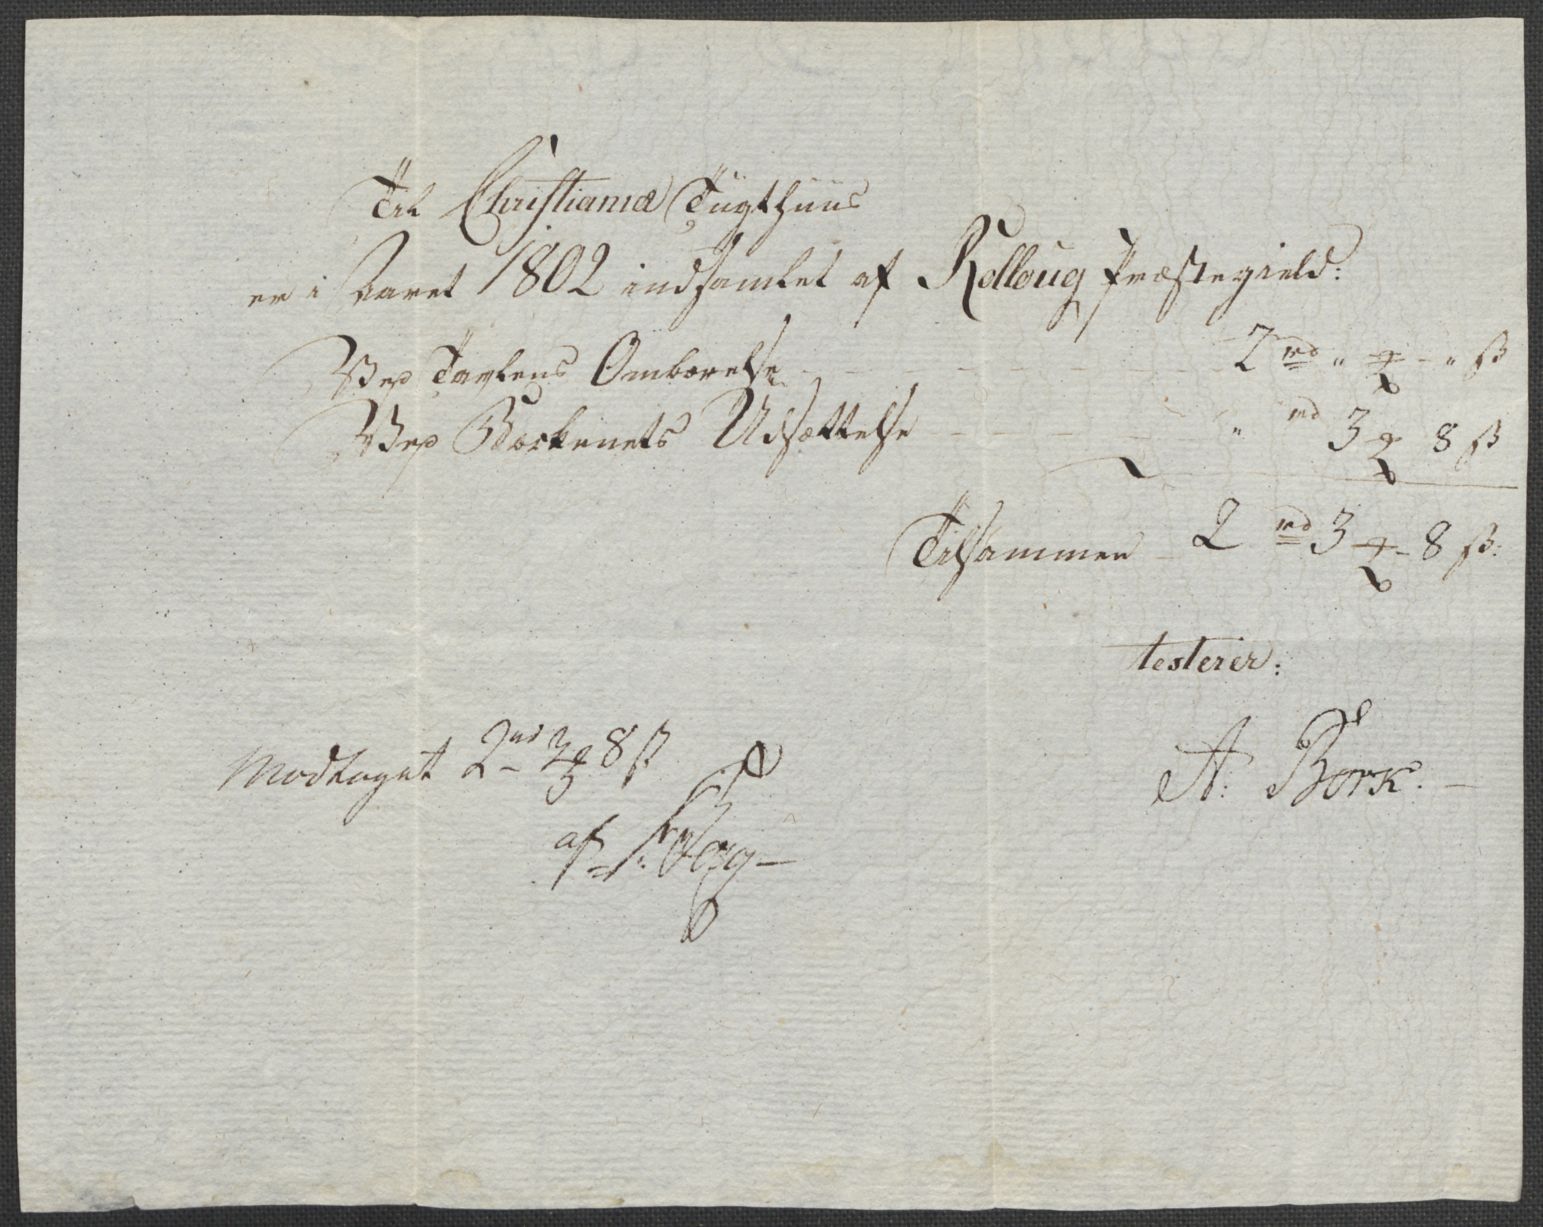 Til Christiania Tugthuus
er i Aaret 1802 indsamlet af Rollaug Præstegield:
Ved Tavlens Ombærelse - - - 2 rd " ꝗ - " ß
Ved Beckenets Udsættelse - - - " rd 3 ꝗ 8 ß
Tilsammen - 2 rd 3 ꝗ - 8 ß:
testerer:
A: Bork. -
Modtaget 2 rd 3 ꝗ 8 ß
af